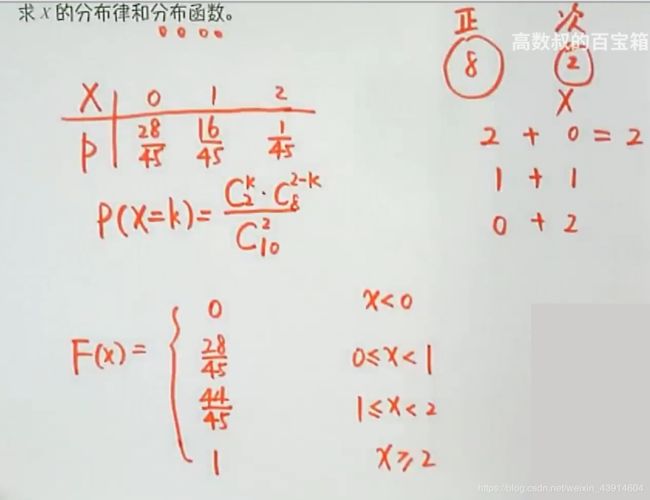 求 X 的分布律和分布函数。
正 次
高数叔的百宝箱
8 2
X
X 0 1 2
P 28/45 16/45 1/45
2 + 0 = 2
1 + 1
0 + 2
P(X=k) = C_2^k · C_8^{2-k} / C_{10}^2
F(x) = { 0 x<0
28/45 0≤x<1
44/45 1≤x<2
1 x≥2
https://blog.csdn.net/weixin_43914604